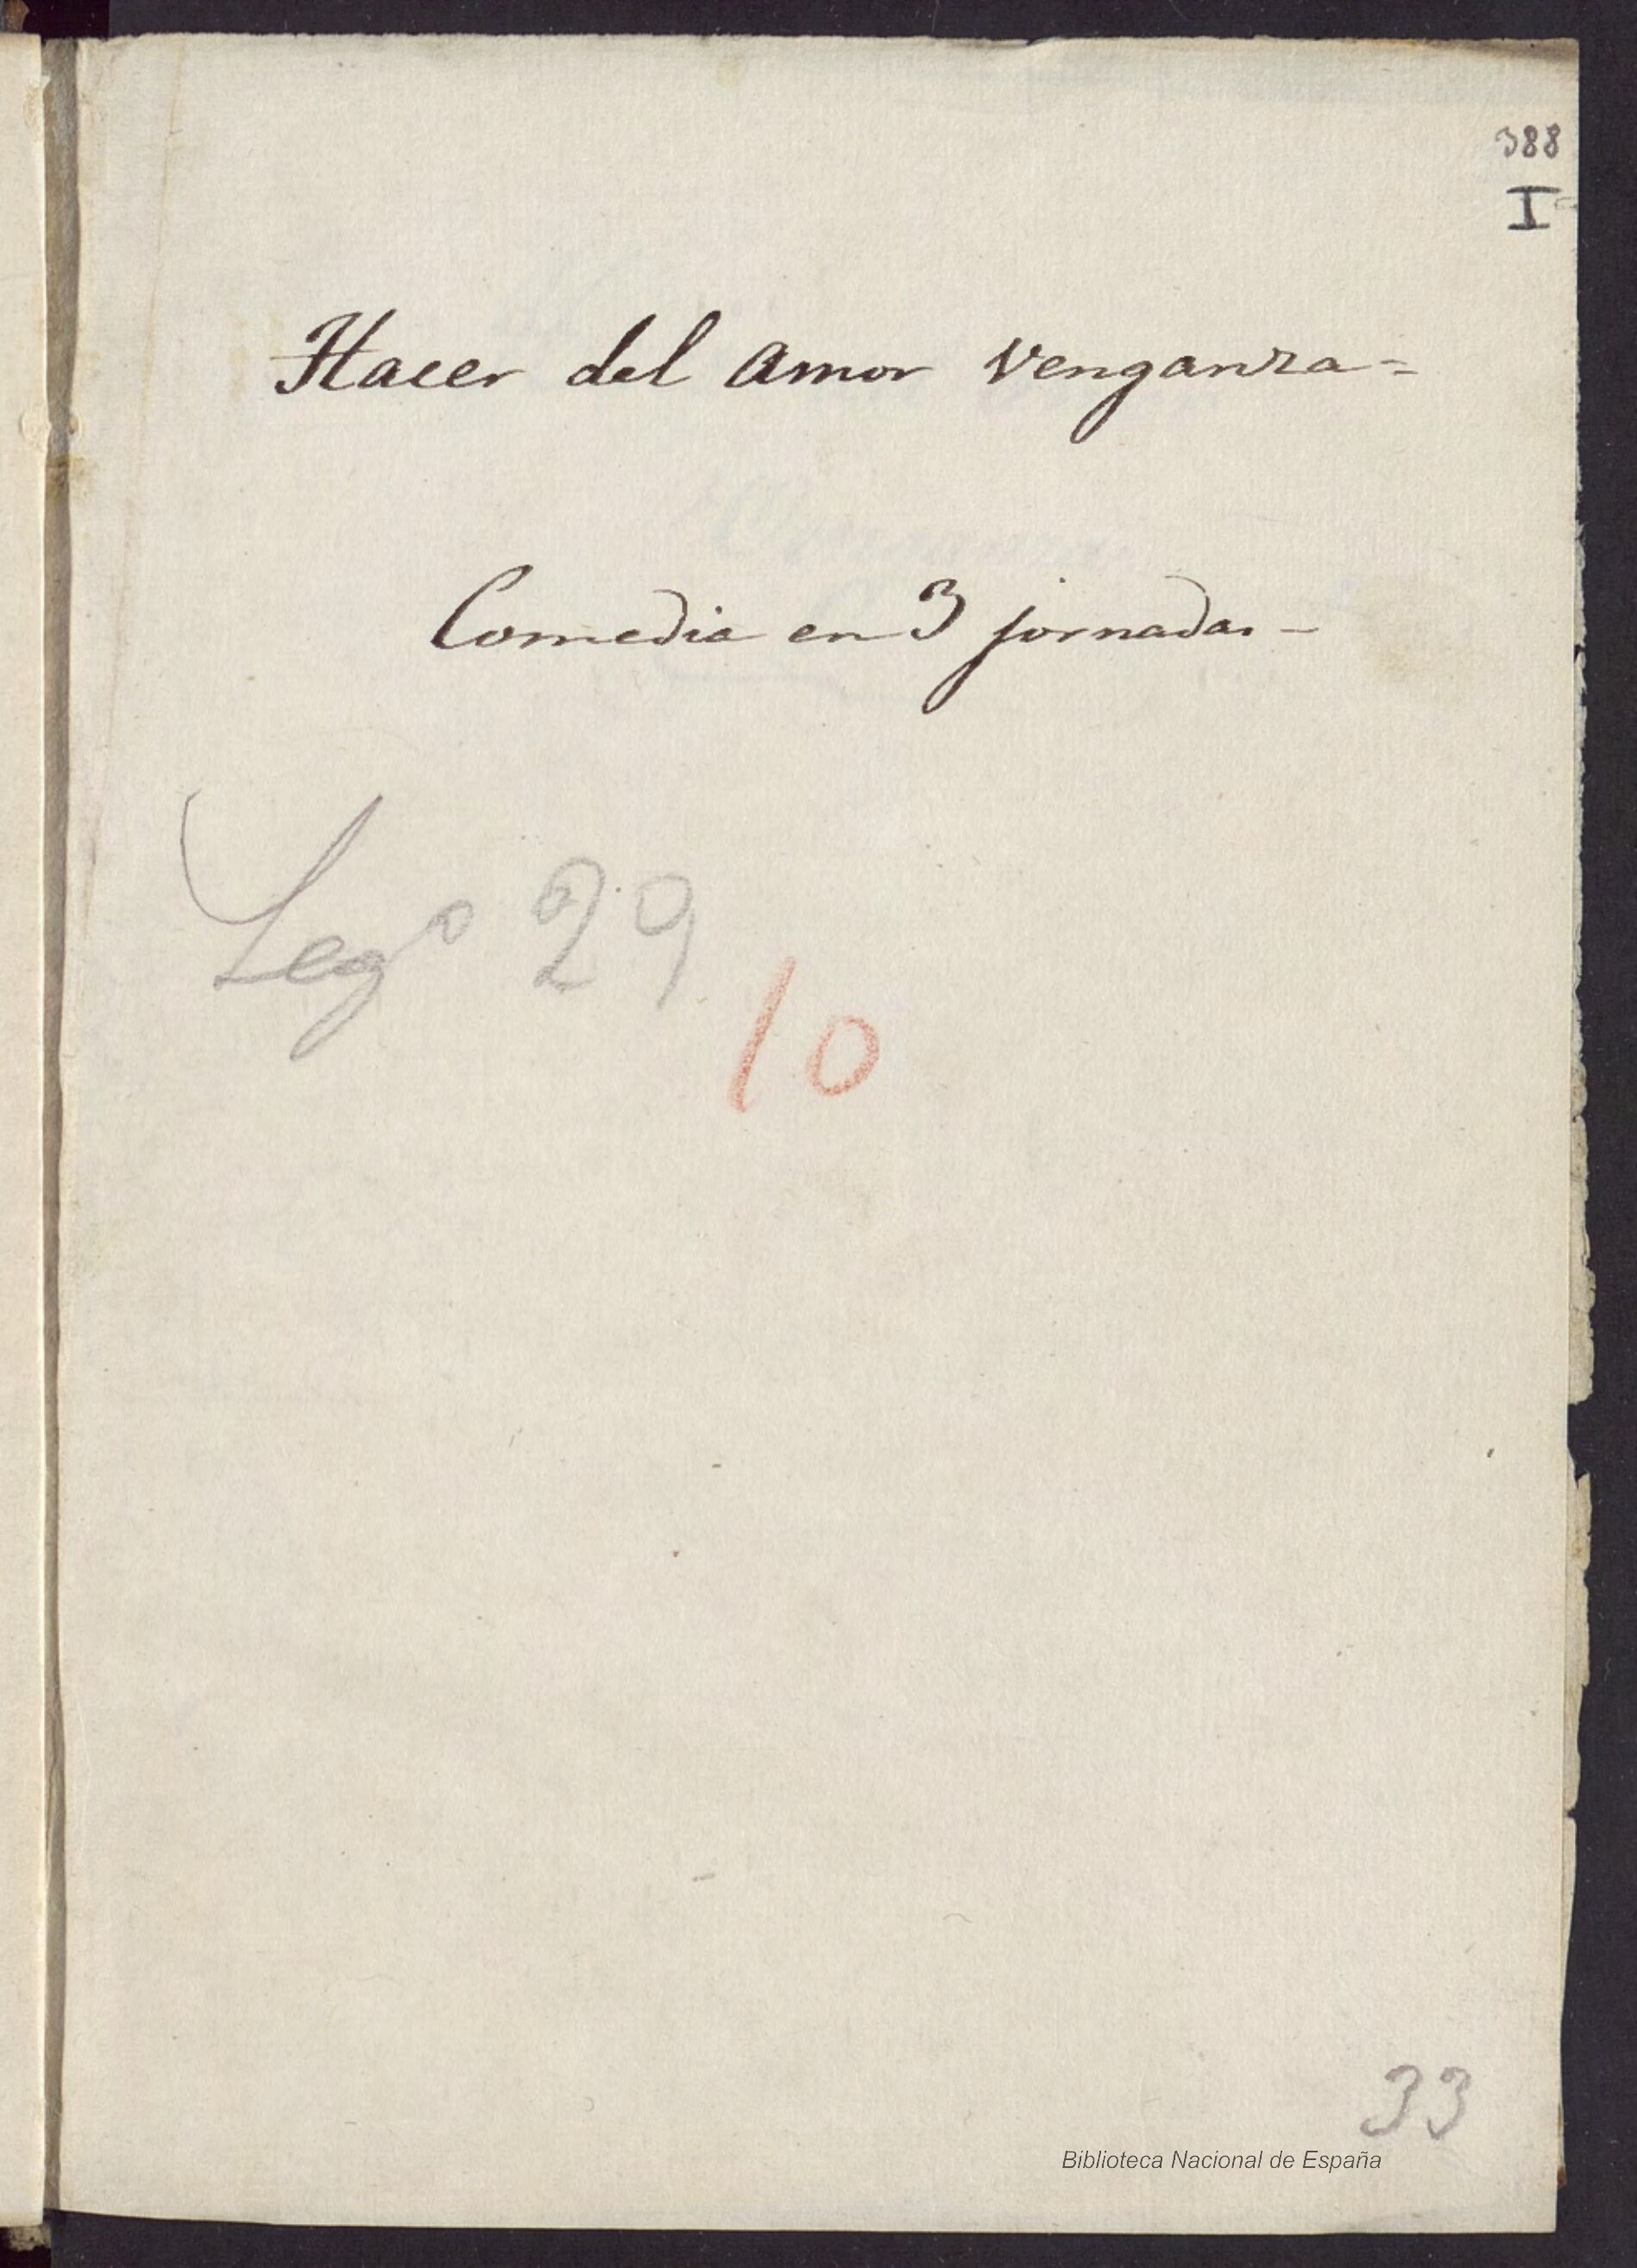 388
I
Hacer del Amor Venganza=
Comedia en 3 jornadas-
Leg° 29
10
33
Biblioteca Nacional de España